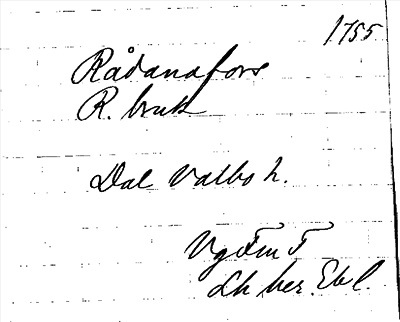 1755
Rådanefors
R. bruk
Dal Valbo h.
Vg Fm F
Lh ber. Ebl.